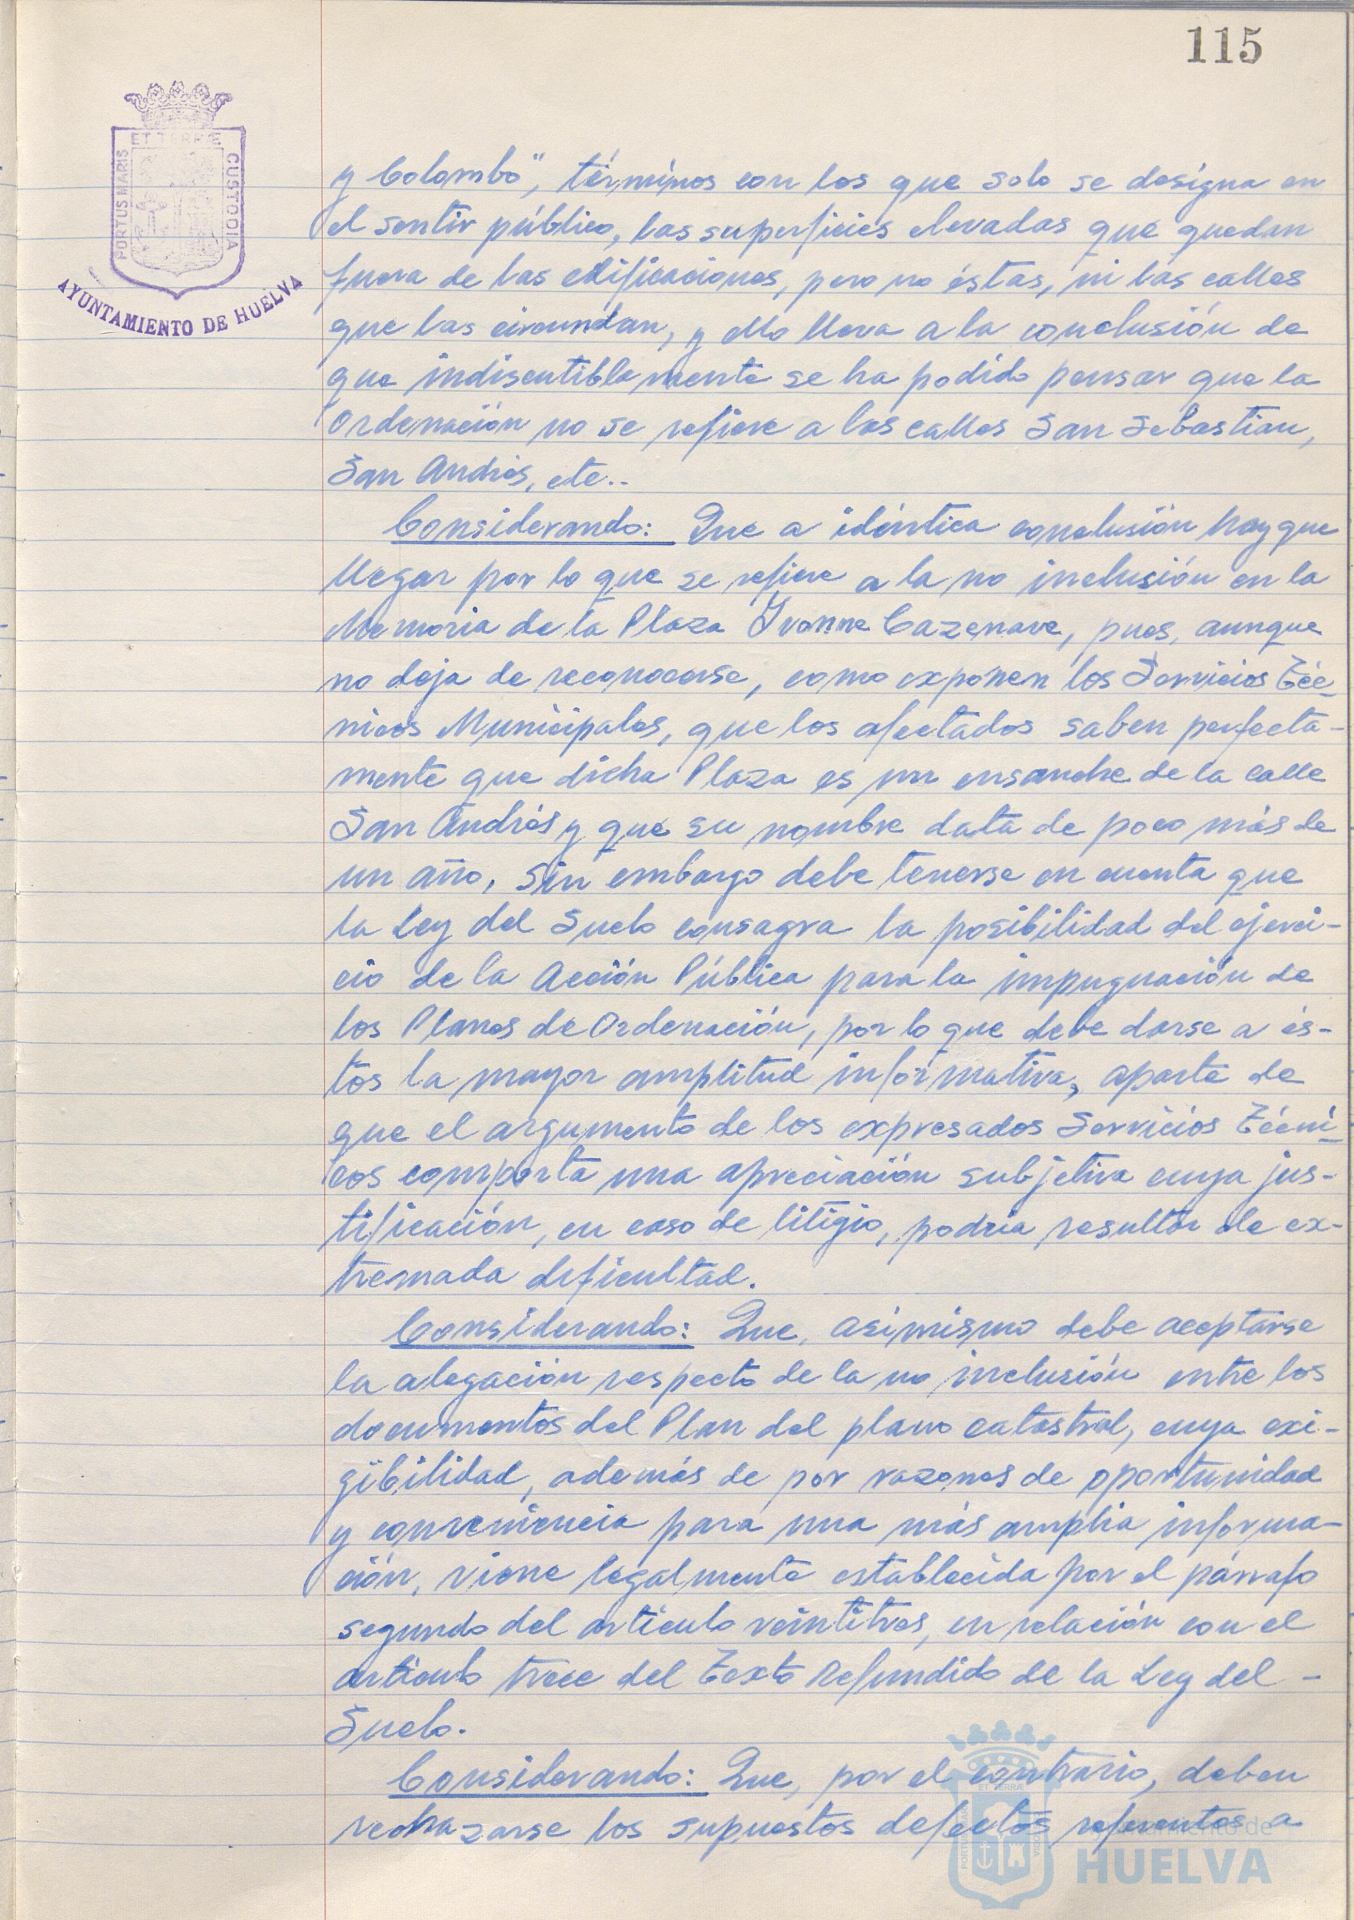 115
ET TERRÆ
PORTUS MARIS
CUSTODIA
AYUNTAMIENTO DE HUELVA
y Colombo", términos con los que solo se designa en
el sentir público, las superficies elevadas que quedan
fuera de las edificaciones, pero no éstas, ni las calles
que las circundan, y ello lleva a la conclusión de
que indiscutiblemente se ha podido pensar que la
Ordenación no se refiere a las calles San Sebastian,
San Andrés, etc..
Considerando: Que a idéntica conclusión hay que
llegar por lo que se refiere a la no inclusión en la
Memoria de la Plaza Ivonne Cazenave, pues, aunque
no deja de reconocerse, como exponen los Servicios Téc-
nicos Municipales, que los afectados saben perfecta-
mente que dicha Plaza es un ensanche de la calle
San Andrés y que su nombre data de poco más de
un año, sin embargo debe tenerse en cuenta que
la Ley del Suelo consagra la posibilidad del ejerci-
cio de la Acción Pública para la impugnación de
los Planes de Ordenación, por lo que debe darse a és-
tos la mayor amplitud informativa, aparte de
que el argumento de los expresados Servicios Técni-
cos comporta una apreciación subjetiva cuya jus-
tificación, en caso de litigio, podría resultar de ex-
tremada dificultad.
Considerando: Que, asimismo debe aceptarse
la alegación respecto de la no inclusión entre los
documentos del Plan del plano catastral, cuya exi-
gibilidad, además de por razones de oportunidad
y conveniencia para una más amplia informa-
ción, viene legalmente establecida por el párrafo
segundo del artículo veintitres, en relación con el
artículo trece del Texto Refundido de la Ley del -
Suelo.
Considerando: Que, por el contrario, deben
rechazarse los supuestos defectos referentes a
Ayuntamiento de
HUELVA